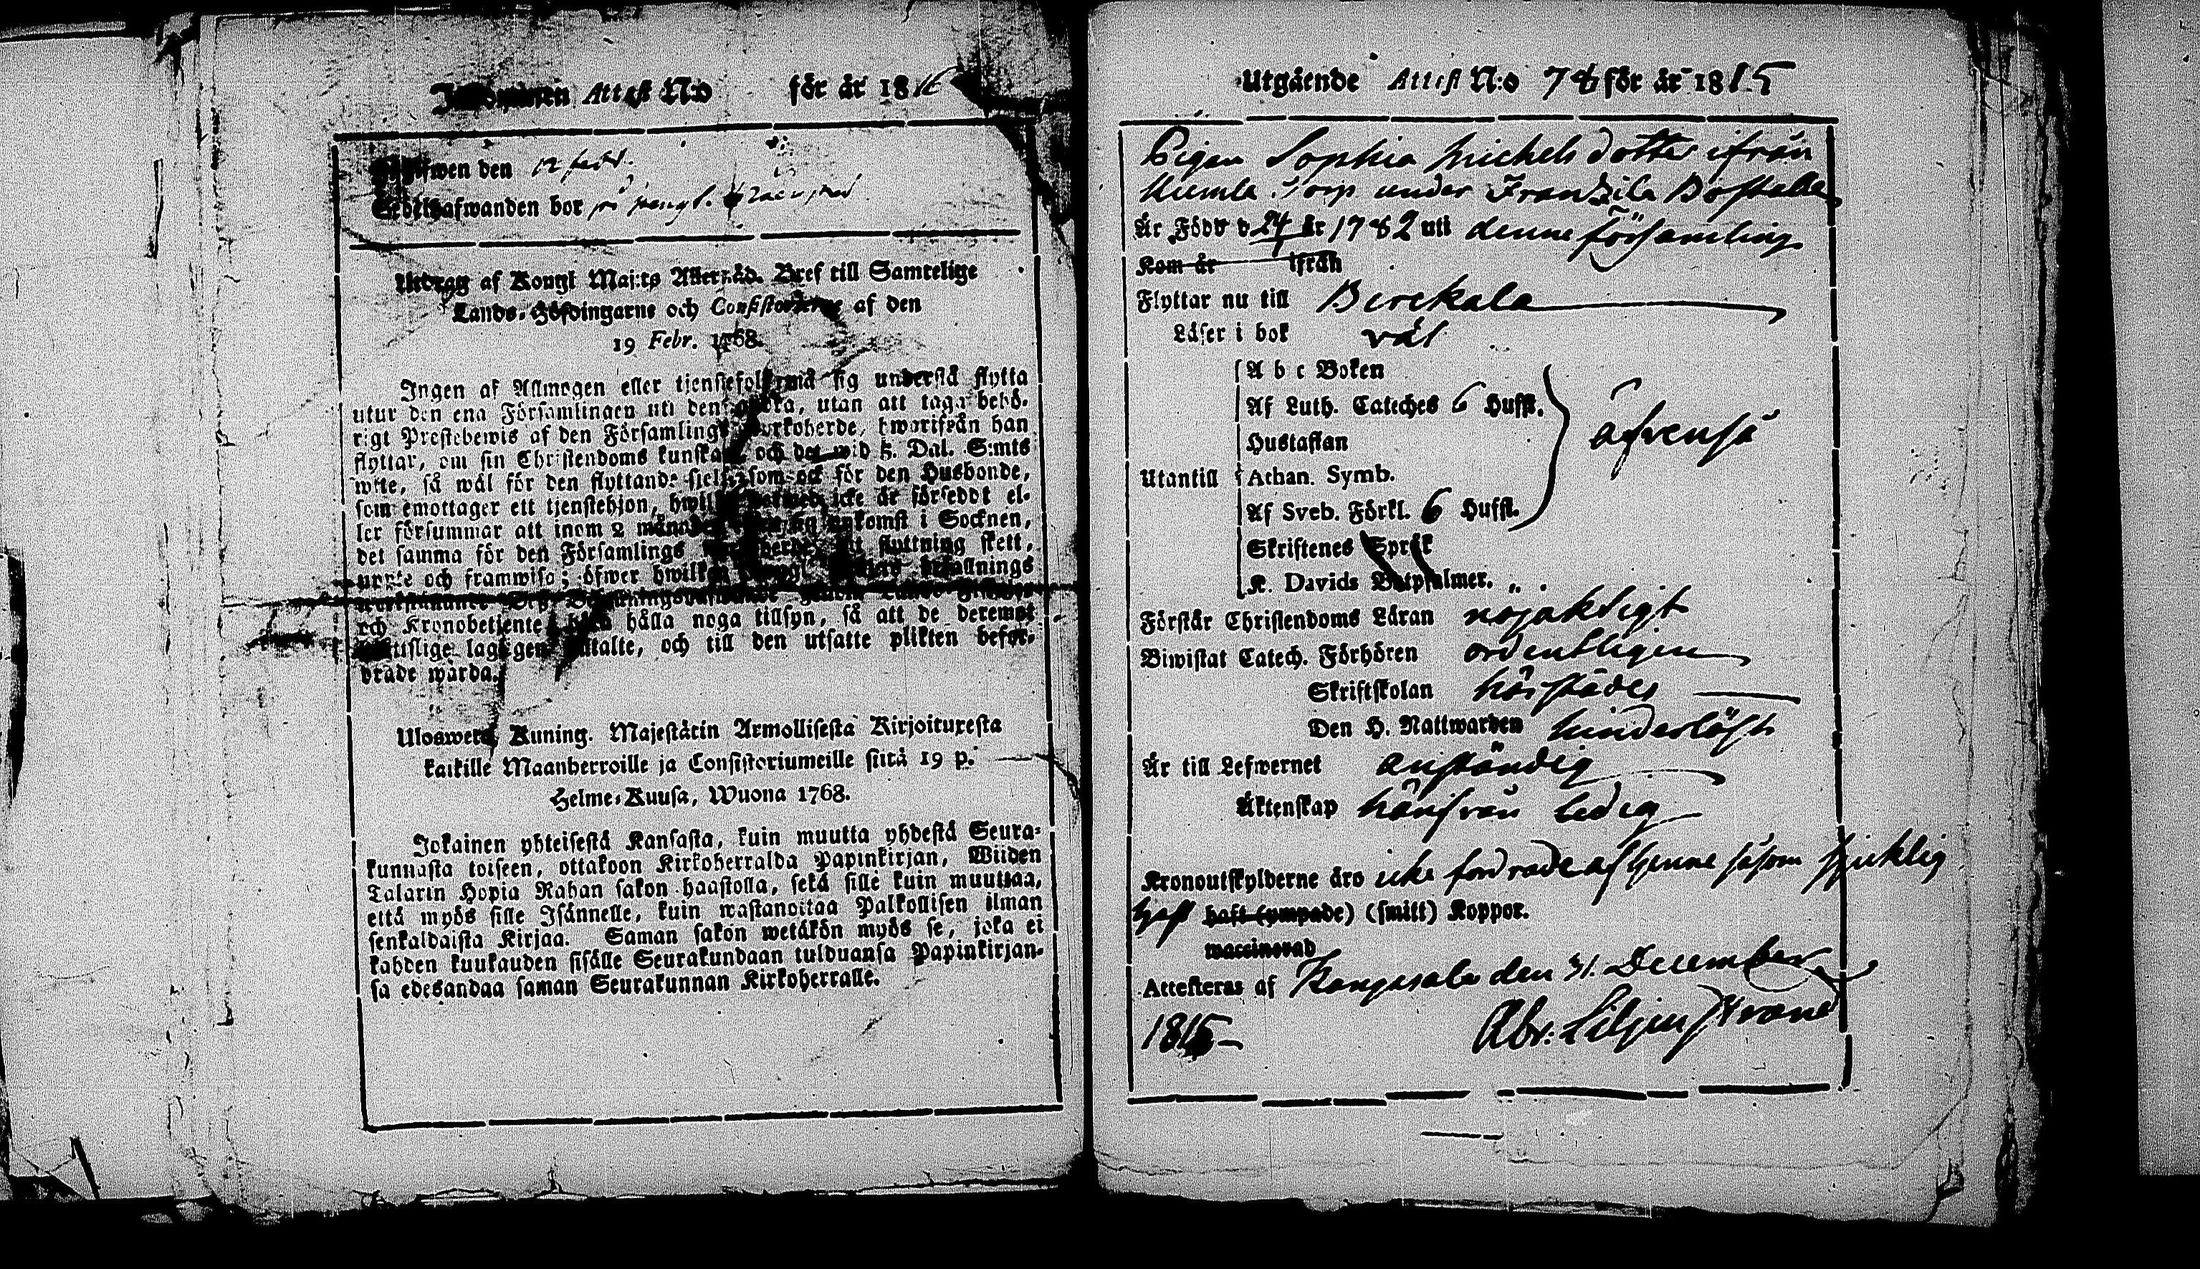 Inkommen Attest N:o för år 1816
Inlefwen den 12 febr.
Sedelhafwanden bor på
Utdrag af Kongl Maj:ts Allernåd. Bref till Samtelige
Lands-Höfdingarne och Consistorierne af den
19 Febr. 1768.
Ingen af Allmogen eller tjenstefolk må sig understå flytta
utur den ena Församlingen uti den andra, utan att taga behö-
rigt Prestebewis af den Församlings Kyrkoherde, hwarifrån han
flyttar, om sin Christendoms kunskap och det wid 5. Dal. S:mts
wite, så wäl för den flyttande sielf, som ock för den Husbonde,
som emottager ett tjenstehjon, hwilket icke är försedt el-
ler försummar att inom 2 månader ankomst i Socknen,
det samma för den Församlings flyttning skett,
uppte och framwisa; öfwer hwilket Befallnings
och Kronobetjente hålla noga tillsyn, så att de deremot
lagligen tiltalte, och till den utsatte plikten befor-
drade warda.
Uloswetty Kuning. Majestätin Armollisesta Kirjoituxesta
kaikille Maanherroille ja Consistoriumeille siitä 19 p.
Helme-Kuusa, Wuona 1768.
Jokainen yhteisestä Kansasta, kuin muutta yhdestä Seura-
kunnasta toiseen, ottakoon Kirkoherralda Papinkirjan, Wiiden
Talarin Hopia Rahan sakon haastolla, sekä sille kuin muuttaa,
että myös sille Isännelle, kuin wastanoittaa Palkollisen ilman
senkaldaista Kirjaa. Saman sakon wetäkön myös se, joka ei
kahden kuukauden sisälle Seurakundaan tulduansa Papinkirjan-
sa edesandaa saman Seurakunnan Kirkoherralle.
Utgående Attest N:o 78 för år 1815
Pigan Sophia Michelsdotter ifrån
Humla Torp under Franzila Boställe
Är Född d 24 år 1782 uti denne församling
Kom år ifrån
Flyttar nu till Birckala
Läser i bok väl
A b c Boken
Af Luth. Cateches 6 Hufst.
Hustaflan
Utantill Athan. Symb.
Af Sveb. Förkl. 6 Hufst.
äfvenså
Skriftenes Språk
K. Davids Botpsalmer.
Förstår Christendoms Läran nöjaktigt
Biwistat Catech. Förhören ordentligen
Skriftskolan härstädes
Den H. Nattwarden hinderlöst
Är till Lefwernet anständig
Äktenskap härifrån ledig
Kronoutskylderne äro icke fordrade af henne såsom sjuklig
haft haft (ympade) (smitt) Koppor.
waccinerad
Attesteras af Kangasala den 31 December
1815
Abr: Liljenstrand